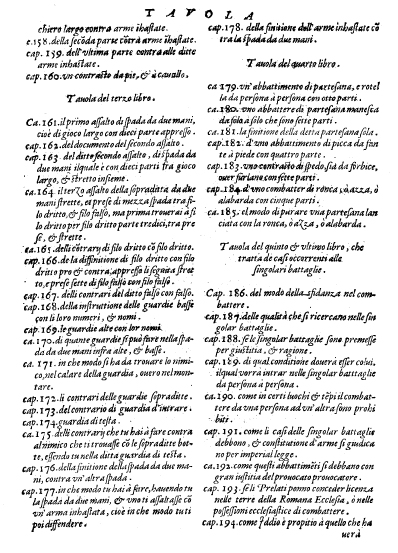 TAVOLA
chiero largo contro arme inhastate.
e.158. della secõda parte cõtra arme ihastate.
cap. 159. dell'vltima parte contra alle ditte
arme inhastate.
cap. 160. vn contrasto da pie, & à cauallo.
Tauola del terzo libro.
Ca. 161. il primo assalto di spada da due mani,
cioè di gioco largo con dieci parte appresso.
cap. 162. del documento del secondo assalto.
cap. 163. del ditto secondo assalto, di spada da
due mani il quale è con dieci parti fra gioco
largo, & stretto insieme.
ca. 164. il terzo assalto della sopradita da due
mani strette, et prese di mezza spada tra fi-
lo dritto, & filo falso, ma prima trouerai à fi
lo dritto per filo dritto parte tredici, tra pre
se, & strette.
ca. 165. delli cõtrarij di filo dritto cõ filo dritto.
cap. 166. de la diffinitione di filo dritto con filo
dritto pro & contra, appresso li seguita stret
to, e prese sette di filo falso con filo falso.
cap. 167. delli contrari del ditto falso con falso.
cap. 168. della instrutione delle guardie basse
con li loro numeri, & nomi.
cap. 169. le guardie alte con lor nomi.
ca. 170. di quante guardie si può fare nella spa-
da da due mani infra alte, & basse.
ca. 171. in che modo si ha da trouare lo nimi-
co, nel calare della guardia, ouero nel mon-
tare.
cap. 172. li contrari delle guardie sopraditte.
cap. 173. del contrario di guardia d'intrare.
cap. 174. guardia di testa.
ca. 175. delli contrarij che tu hai à fare contra
al nimico che ti trouasse cõ le sopraditte bot-
te, essendo tu nella ditta guardia di testa.
cap. 176. della finitione della spada da due ma-
ni, contra vn'altra spada.
cap. 177. in che modo tu hai à fare, hauendo tu
la spada da due mani, & vno ti assaltasse cõ
vn'arma inhastata, cioè in che modo tu ti
poi diffendere.
cap. 178. della finitione dell'arme inhastate cõ
tra la spada da due mani.
Tauola del quarto libro.
ca 179. vn'abbattimento di partesana, e rotel
la da persona à persona con otto parti.
ca. 180. vno abbattere di partesana manesca
da solo à solo che sono sette parti.
ca. 181. la finitione della detta partesana sola.
cap. 182. d'vno abbattimento di picca da fan
te à piede con quattro parte.
cap. 183. vno contrasto di spedo, sia da forbice,
ouer furlano con sette parti.
cap. 184. d'vno combatter di ronca, ò azza, ò
alabarda con cinque parti.
ca. 185. el modo di parare vna partesana lan
ciata con la ronca, ò azza, ò alabarda.
Tauola del quinto & vltimo libro, che
tratta de casi occorrenti alle
singolari battaglie.
Cap. 186. del modo della sfidanza nel com-
battere.
cap. 187. delle qualità che si ricercano nelle sin
golar battaglie.
cap. 188. se le singolar battaglie sono premesse
per giustitia, & ragione.
cap. 189. di qual conditione douerà esser colui,
il qual vorrà intrar nelle singolar battaglie
da persona à persona.
cap. 190. come in certi luochi & tẽpi il combat-
tere da vna persona ad vn'altra sono prohi
biti.
cap. 191. come li casi delle singolar battaglie
debbono, & constitutione d'arme si giudica
no per imperial legge.
ca. 192. come questi abbattimẽti si debbano con
gran iustitia del prouocato prouocatore.
cap. 193. se li Prelati ponno concedere licenza
nelle terre della Romana Ecclesia, ò nelle
possessioni ecclesiastice di combattere.
cap. 194. come Iddio è propitio à quello che ha
uerà